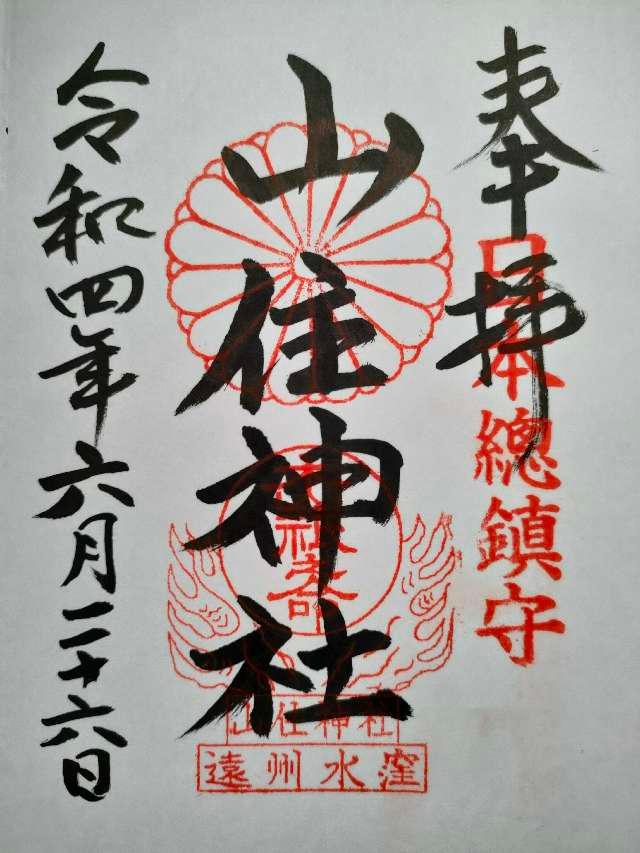 奉拝
日本總鎮守
山住神社
山住神社
遠州水窪
令和四年六月二十六日